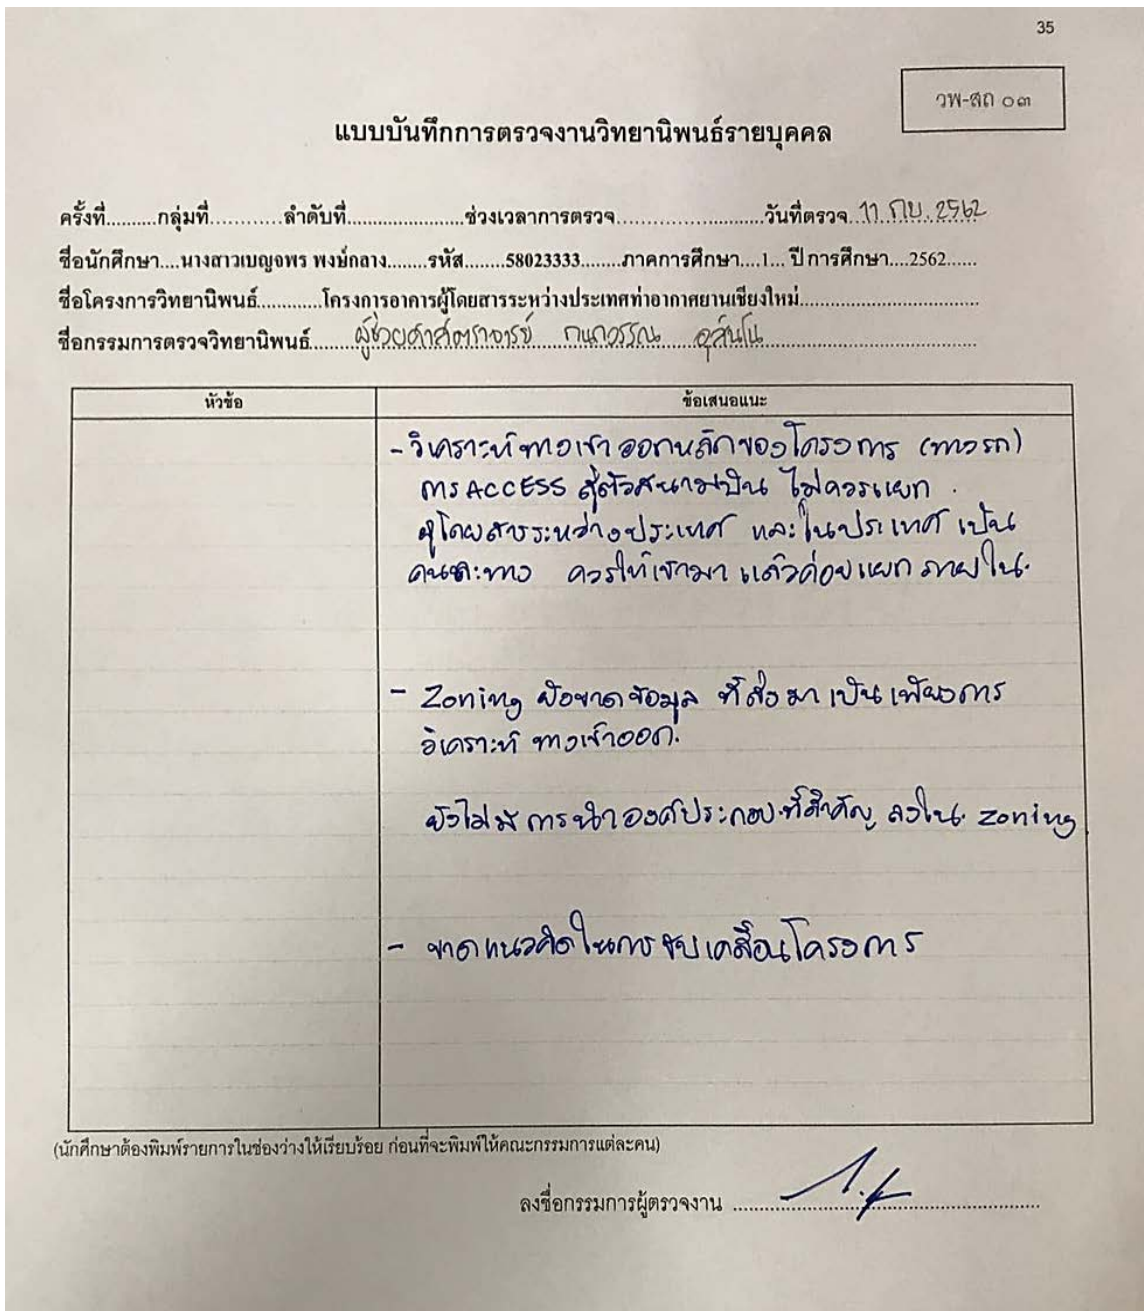 35
วพ-สถ ๐๓
แบบบันทึกการตรวจงานวิทยานิพนธ์รายบุคคล
ครั้งที่..........กลุ่มที่...........ลำดับที่......................ช่วงเวลาการตรวจ...........................วันที่ตรวจ..11 กย. 2562
ชื่อนักศึกษา....นางสาวเบญจพร พงษ์กลาง........รหัส........58023333........ภาคการศึกษา....1... ปีการศึกษา....2562......
ชื่อโครงการวิทยานิพนธ์............โครงการอาคารผู้โดยสารระหว่างประเทศท่าอากาศยานเชียงใหม่..................................
ชื่อกรรมการตรวจวิทยานิพนธ์......ผู้ช่วยศาสตราจารย์ กนกวรรณ อุสันโน......................................
หัวข้อ ข้อเสนอแนะ
- วิเคราะห์ทางเข้าออกหลักของโครงการ (ทางรถ)
การ ACCESS สู่ตัวสนามบิน ไม่ควรแยก
ผู้โดยสารระหว่างประเทศ และในประเทศ เป็น
คนละทาง ควรให้เข้ามา แล้วค่อยแยกภายใน.
- Zoning ยังขาดข้อมูล ที่ส่งมา เป็นเพียงการ
วิเคราะห์ ทางเข้าออก.
ยังไม่มีการนำองค์ประกอบที่สำคัญ ลงใน Zoning
- ขาดแนวคิดในการขับเคลื่อนโครงการ
(นักศึกษาต้องพิมพ์รายการในช่องว่างให้เรียบร้อย ก่อนที่จะพิมพ์ให้คณะกรรมการแต่ละคน)
ลงชื่อกรรมการผู้ตรวจงาน ........................................